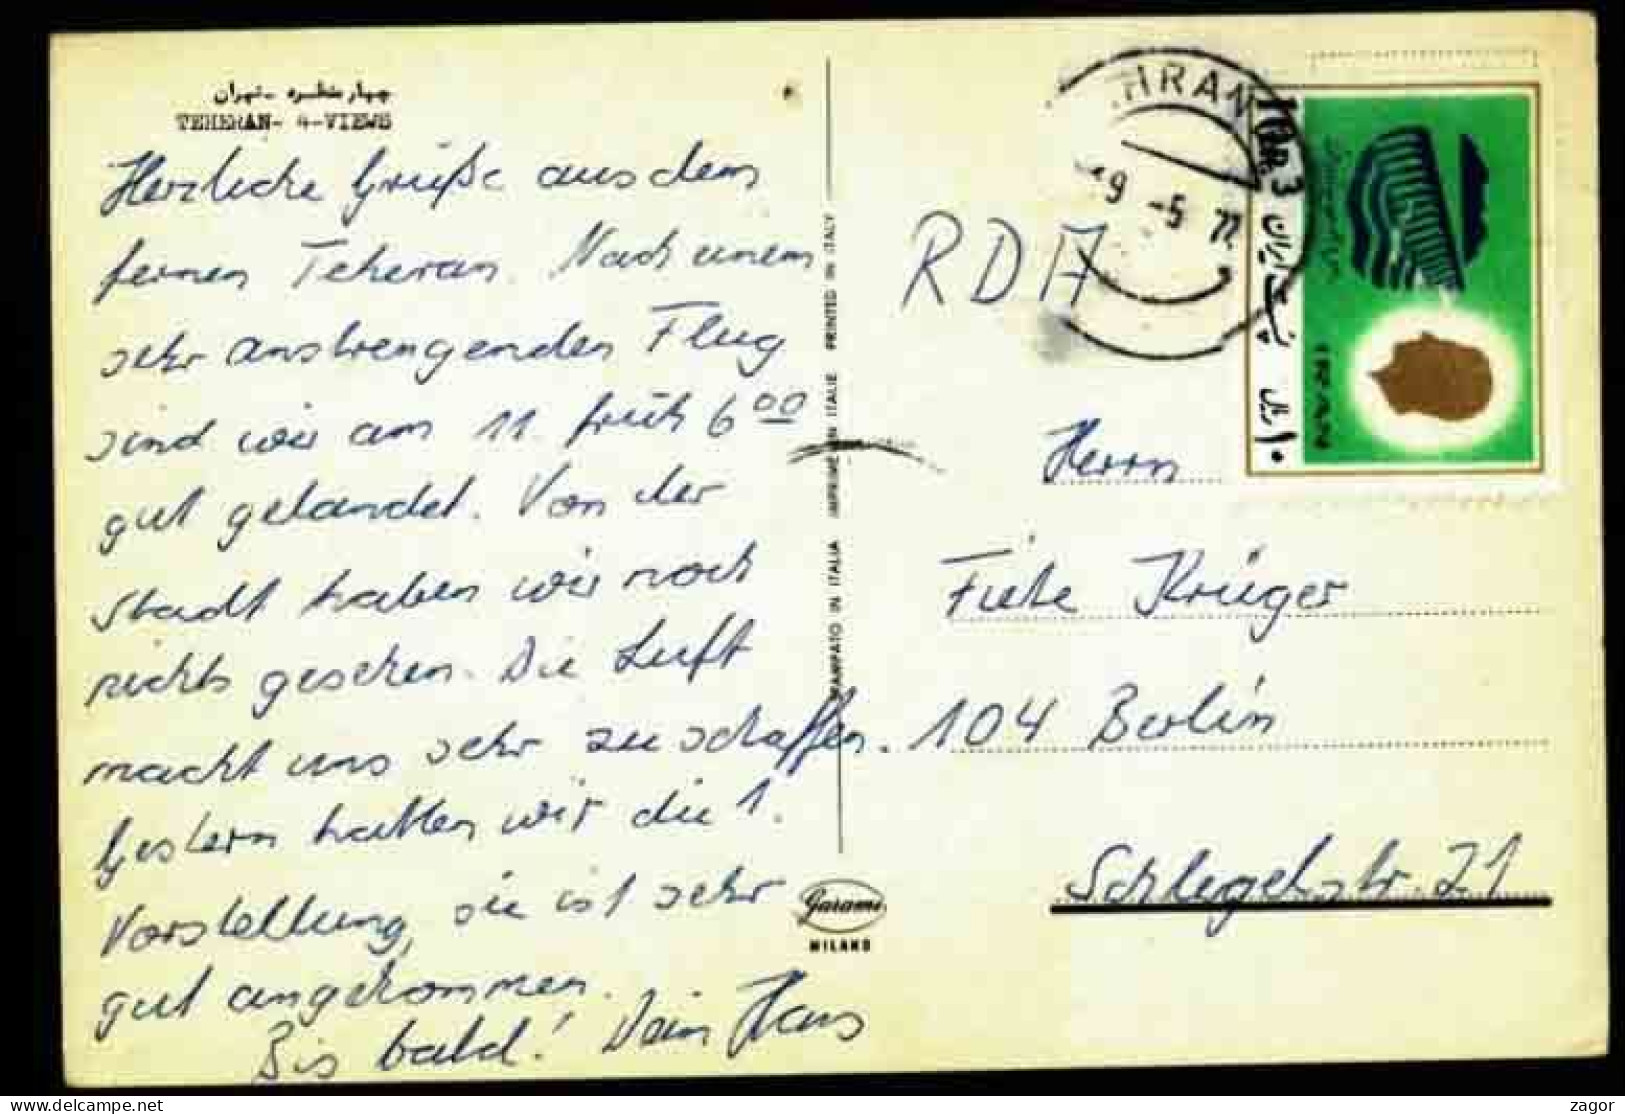 چهار منظره - تهران
TEHERAN- 4-VIEWS
Herzliche Grüße aus dem
fernen Teheran. Nach einem
sehr anstrengenden Flug
sind wir am 11. früh 6 00
gut gelandet. Von der
Stadt haben wir noch
nichts gesehen. Die Luft
macht uns sehr zu schaffen.
Gestern hatten wir die 1.
Vorstellung, sie ist sehr
gut angekommen.
Bis bald! Dein Hans
STAMPATO IN ITALIA IMPRIME EN ITALIE PRINTED IN ITALY
Garami
MILANO
RDA
HRAN
-5
10R.
پست ایران
۱۰ ریال
Herrn
Fiete Krüger
104 Berlin
Schlegelstr. 21
delcampe.net
zagor